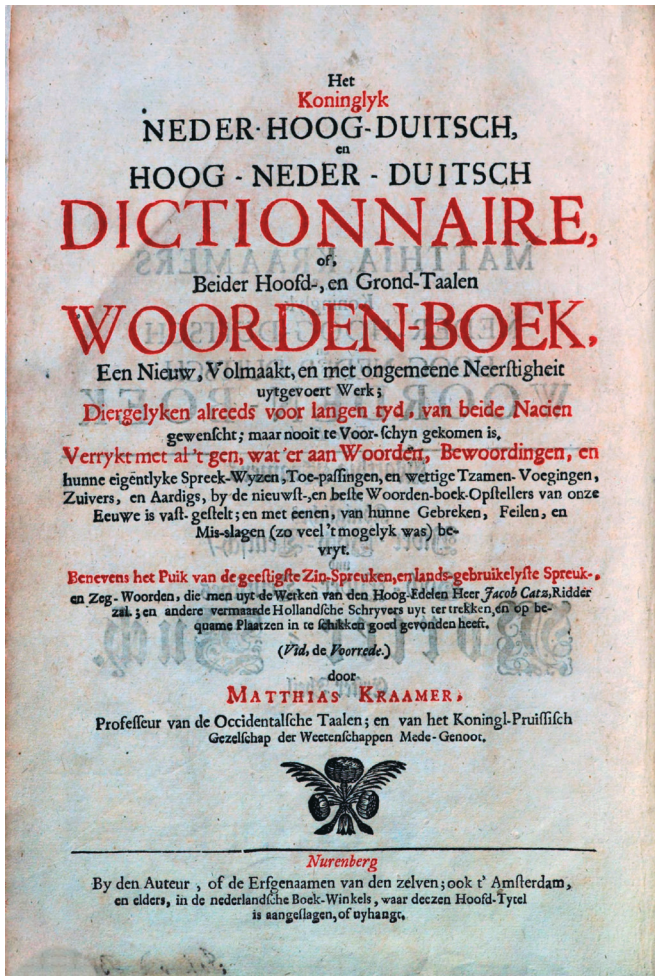 Het
Koninglyk
NEDER-HOOG-DUITSCH,
en
HOOG - NEDER - DUITSCH
DICTIONNAIRE,
of,
Beider Hoofd-, en Grond-Taalen
WOORDEN-BOEK,
Een Nieuw, Volmaakt, en met ongemeene Neerſtigheit
uytgevoert Werk;
Diergelyken alreeds voor langen tyd, van beide Nacien
gewenſcht; maar nooit te Voor-ſchyn gekomen is.
Verrykt met al 't gen, wat 'er aan Woorden, Bewoordingen, en
hunne eigentlyke Spreek-Wyzen, Toe-paſſingen, en wettige Tzamen-Voegingen,
Zuivers, en Aardigs, by de nieuwſt-, en beſte Woorden-boek-Opſtellers van onze
Eeuwe is vaſt-geſtelt; en met eenen, van hunne Gebreken, Feilen, en
Mis-slagen (zo veel 't mogelyk was) be-
vryt.
Benevens het Puik van de geeſtigſte Zin-Spreuken, en lands-gebruikelyſte Spreuk-,
en Zeg-Woorden, die men uyt de Werken van den Hoog-Edelen Heer Jacob Catz, Ridder
zal.; en andere vermaarde Hollandſche Schryvers uyt ter trekken, en op be-
quame Plaatzen in te ſchikken goed gevonden heeft.
(Vid, de Voorrede.)
door
MATTHIAS KRAAMER,
Profeſſeur van de Occidentalſche Taalen; en van het Koningl-Pruiſſiſch
Gezelſchap der Weetenſchappen Mede-Genoot.
Nurenberg
By den Auteur, of de Erfgenaamen van den zelven; ook t' Amſterdam,
en elders, in de nederlandſche Boek-Winkels, waar deezen Hoofd-Tytel
is aangeſlagen, of uyhangt.